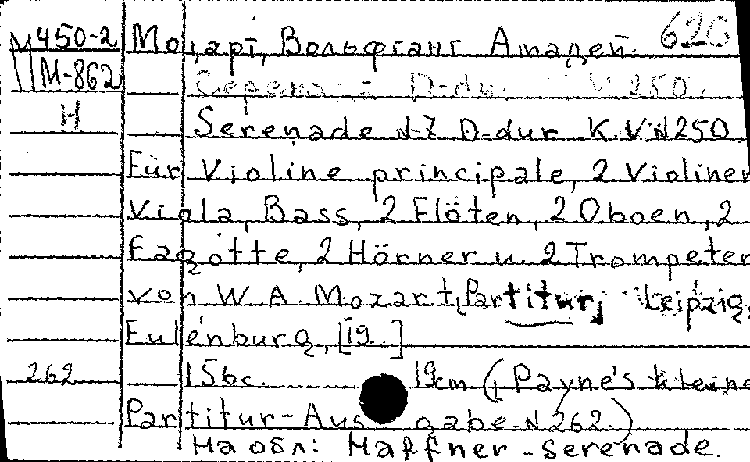 м450-2 Моцарт, Вольфганг Амадей. 626
М-862 Серенада D-dur. 250.
Н Serenade №7 D-dur K.V.№250
Für Violine principale, 2 Violinen
Viola, Bass, 2 Flöten, 2 Oboen, 2
Fagotte, 2 Hörner u. 2 Trompeten
von W. A. Mozart, Partitur, Leipzig,
Eulenburg, [19..]
262 156c. 19cm (Payne's kleine
Partitur-Ausgabe №262)
На обл: Haffner-Serenade.